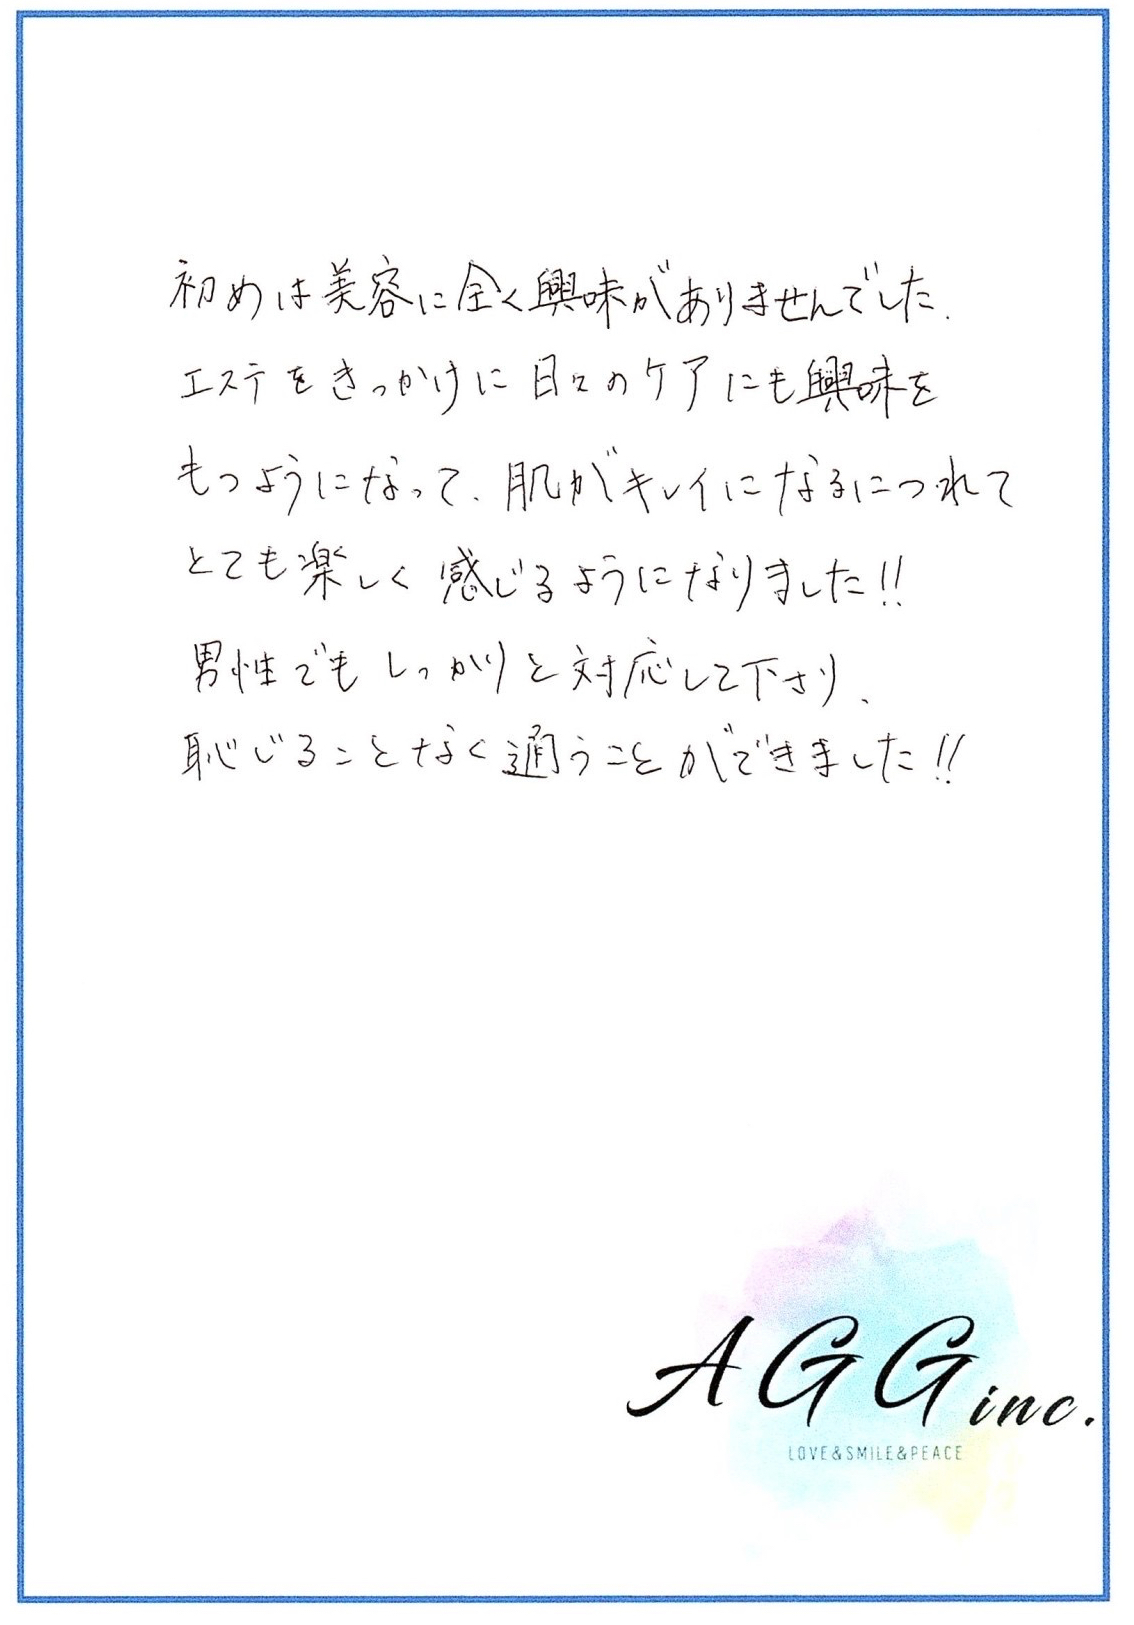 初めは美容に全く興味がありませんでした.
エステをきっかけに日々のケアにも興味を
もつようになって、肌がキレイになるにつれて
とても楽しく感じるようになりました!!
男性でもしっかりと対応して下さり、
恥じることなく通うことができました!!
AGG inc.
LOVE&SMILE&PEACE